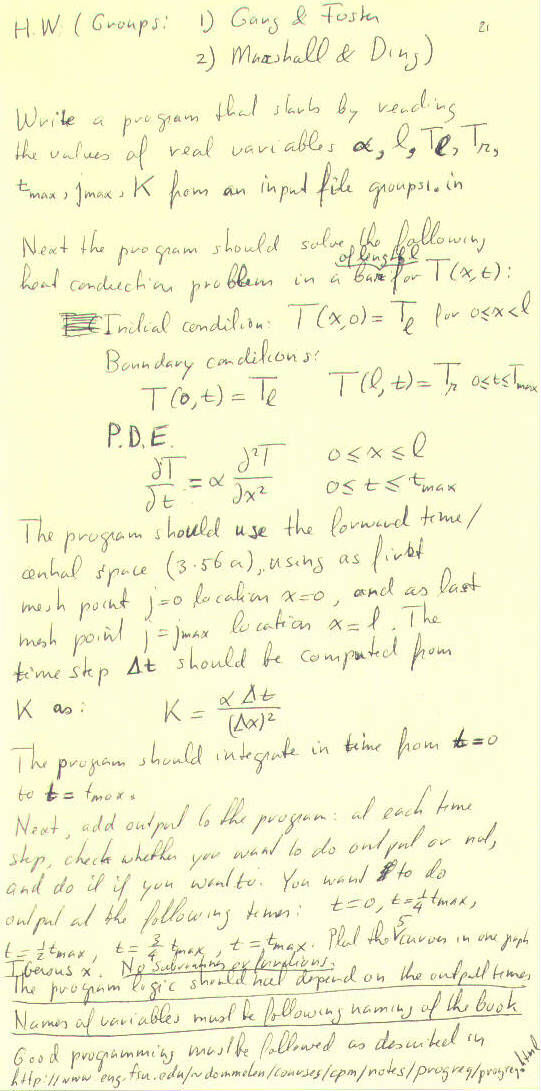 H.W. (Groups: 1) Gang & Foster
21
2) Marshall & Ding)
Write a program that starts by reading
the values of real variables α, l, Tl, Tr,
tmax, jmax, K from an input file groups1.in
Next the program should solve the following
heat conduction problem in a bar of length l for T(x,t):
Initial condition: T(x,0) = Tl for 0≤x<l
Boundary conditions:
T(0,t) = Tl T(l,t) = Tr 0≤t≤Tmax
P.D.E.
∂T/∂t = α ∂²T/∂x² 0 ≤ x ≤ l
0 ≤ t ≤ tmax
The program should use the forward time/
central space (3.56a), using as first
mesh point j=0 location x=0, and as last
mesh point j=jmax location x=l. The
time step Δt should be computed from
K as: K = αΔt/(Δx)²
The program should integrate in time from t=0
to t=tmax.
Next, add output to the program: at each time
step, check whether you want to do output or not,
and do it if you want to. You want to do
output at the following times: t=0, t=¼tmax,
t=½tmax, t=¾tmax, t=tmax. Plot the 5 curves in one graph
T versus x. No subroutines or functions.
The program logic should not depend on the output times
Names of variables must be following naming of the book
Good programming must be followed as described in
http://www.eng.fsu.edu/~dommelen/courses/cpm/notes/progreq/progreq.html